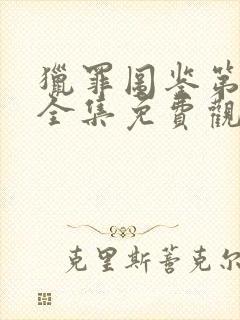 獵罪图鉴第
全集免費觀
克里斯蒂克尔